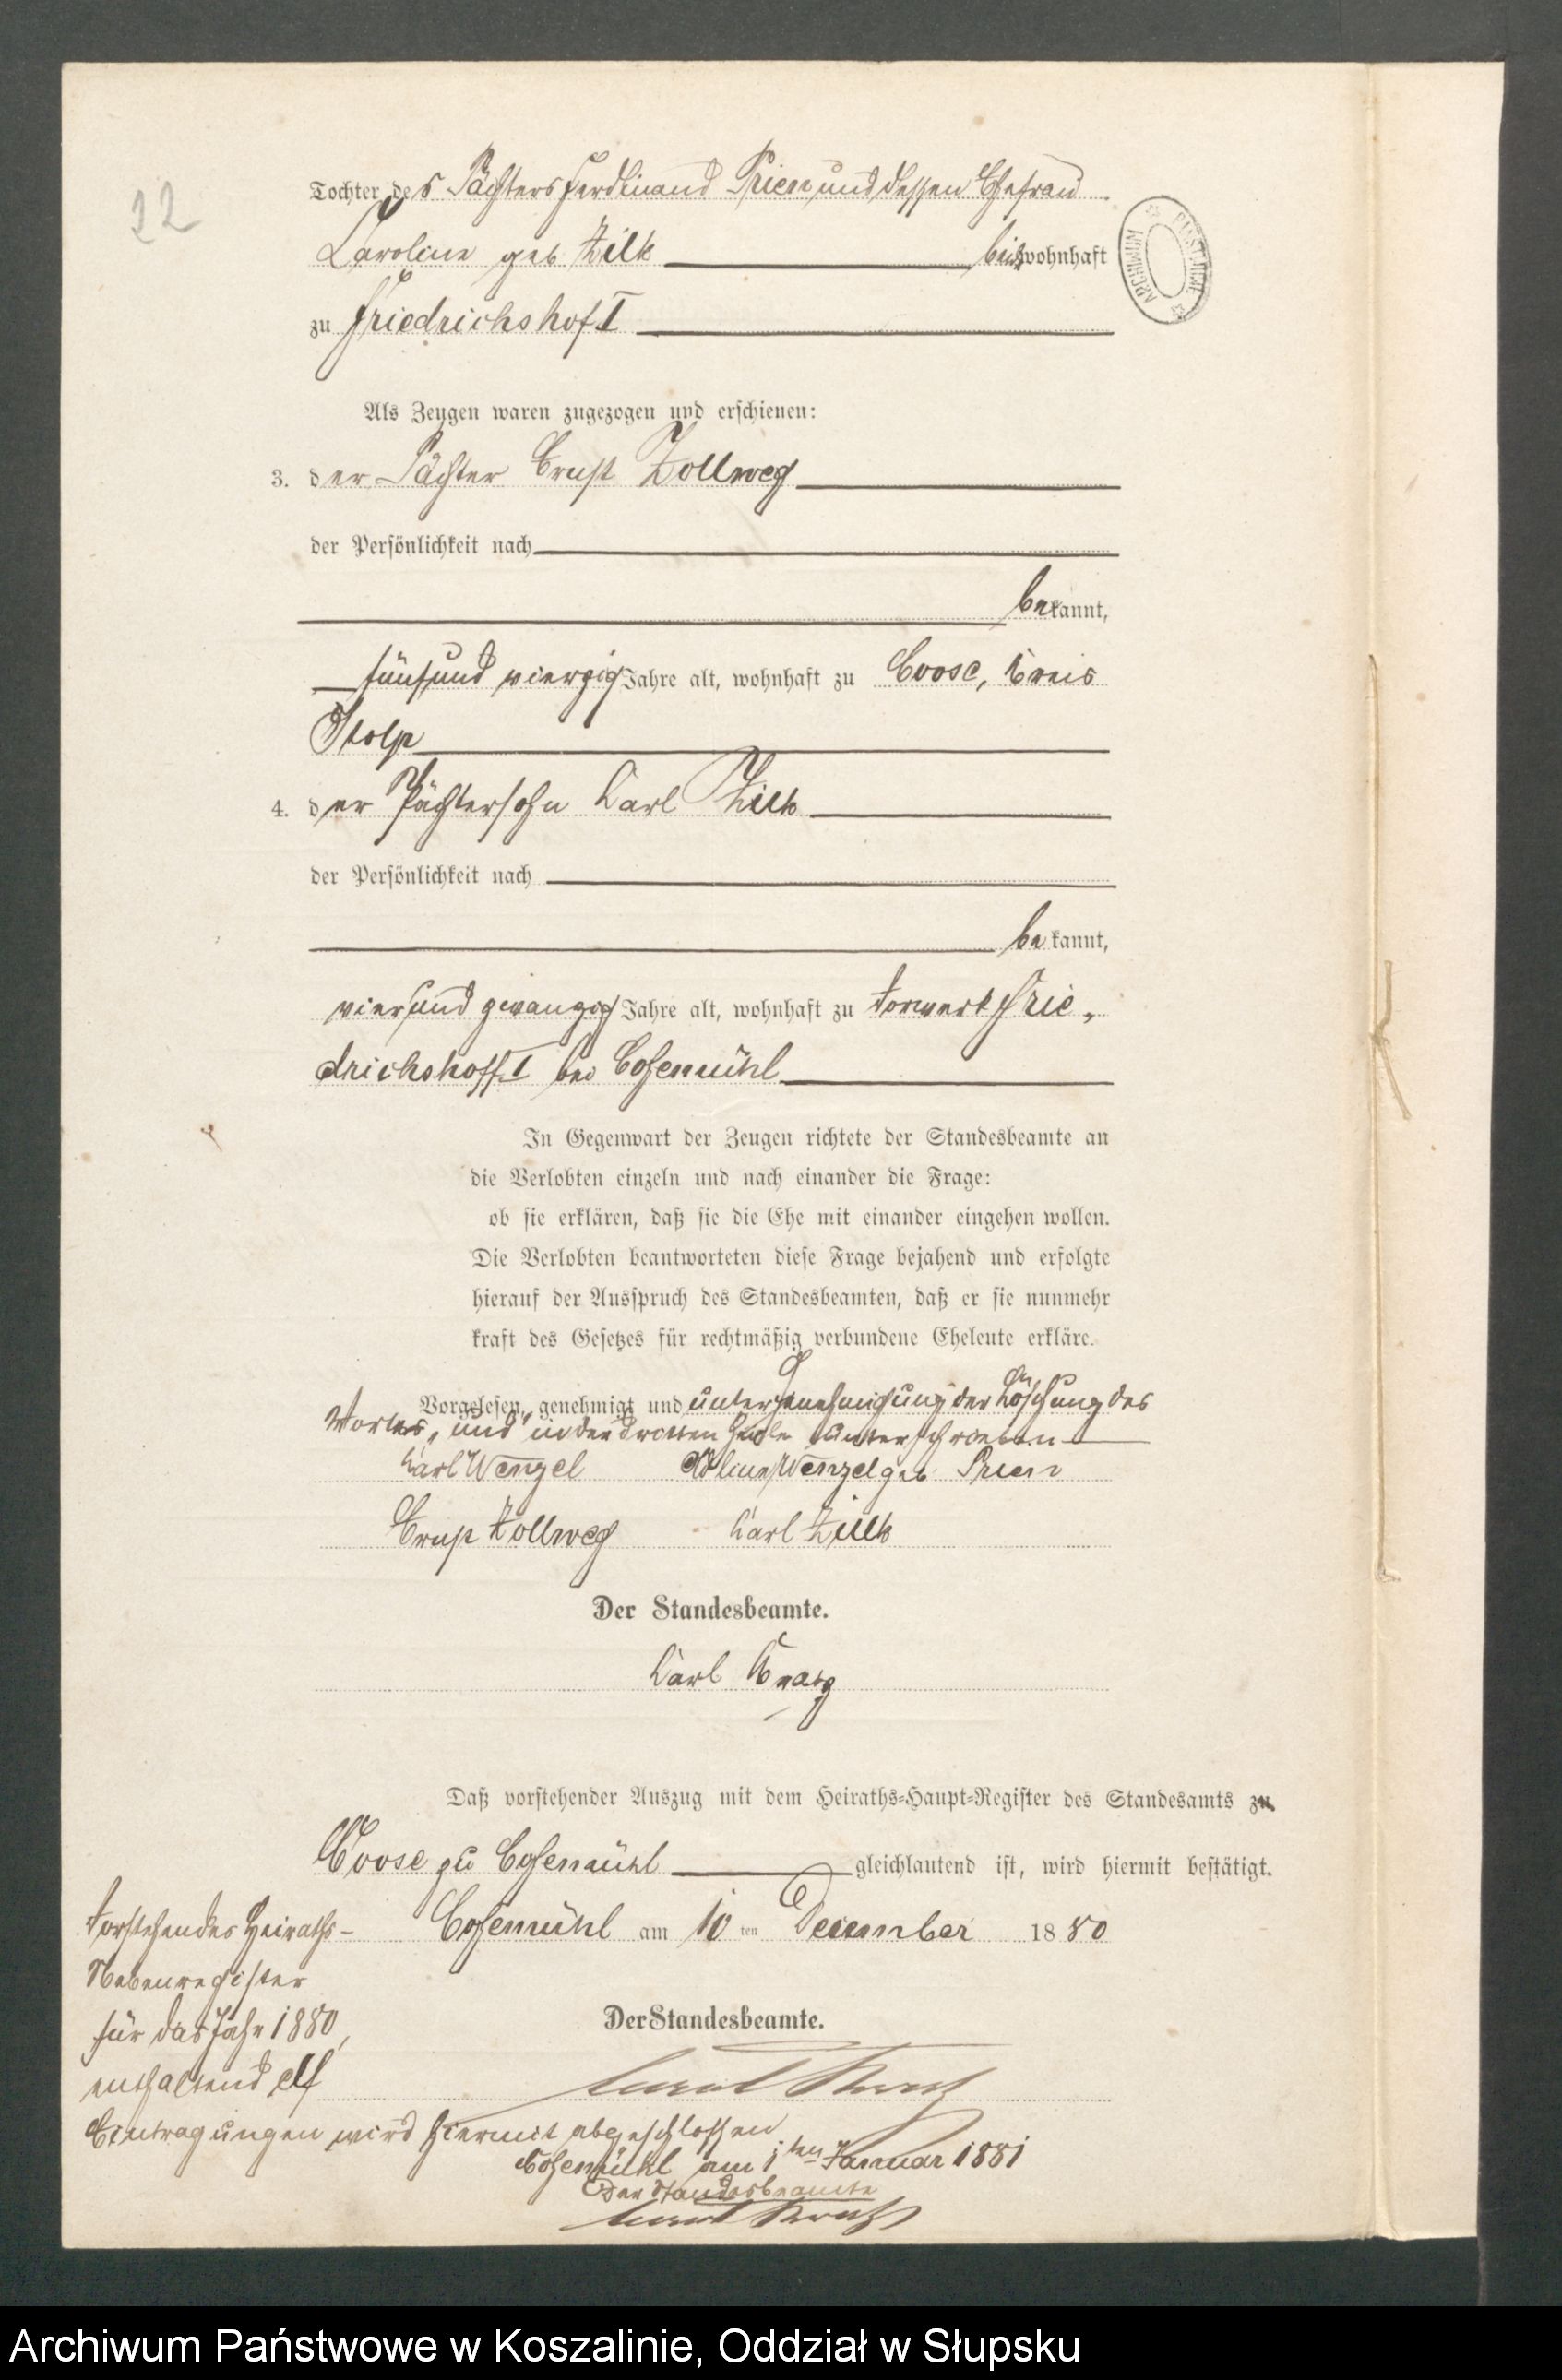 22
Tochter des Pächters Ferdinand Prien und dessen Ehefrau
Caroline geb Zilk beide wohnhaft
zu Friedrichshof I
Als Zeugen waren zugezogen und erschienen:
3. der Pächter Ernst Zollweg
der Persönlichkeit nach
bekannt,
fünfund vierzig Jahre alt, wohnhaft zu Coose, Kreis
Stolp
4. der Pächtersohn Carl Zilk
der Persönlichkeit nach
bekannt,
vierund zwanzig Jahre alt, wohnhaft zu Vorwerk Frie-
drichshoff I bei Cosemühl
In Gegenwart der Zeugen richtete der Standesbeamte an
die Verlobten einzeln und nach einander die Frage:
ob sie erklären, daß sie die Ehe mit einander eingehen wollen.
Die Verlobten beantworteten diese Frage bejahend und erfolgte
hierauf der Ausspruch des Standesbeamten, daß er sie nunmehr
kraft des Gesetzes für rechtmäßig verbundene Eheleute erkläre.
Vorgelesen, genehmigt und unter Genehmigung der Löschung des
Wortes "und" in der dritten Zeile unterschrieben
Carl Wenzel Wenzel geb Prien
Ernst Zollweg Carl Zilk
Der Standesbeamte.
Carl
Daß vorstehender Auszug mit dem Heiraths-Haupt-Register des Standesamts zu
Coose zu Cosemühl gleichlautend ist, wird hiermit bestätigt.
Cosemühl am 10 ten December 1880
Der Standesbeamte.
Vorstehendes Heiraths-
Nebenregister
für das Jahr 1880,
enthaltend elf
Eintragungen wird hiermit abgeschlossen
Cosemühl am 1ten Januar 1881
Der Standesbeamte
Archiwum Państwowe w Koszalinie, Oddział w Słupsku